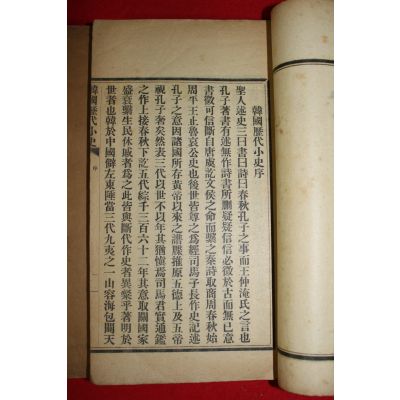 韓國歷代小史序
聖人述史三曰書曰詩曰春秋孔子之事而王仲淹氏之言也
孔子著書有述無作詩書所刪疑疑信信必徵於古而無已意
書徵可信斷自唐虞訖文侯之命而驥之秦詩取商周春秋始
周平王止魯哀公史也後世皆尊之爲經司馬子長作史記述
孔子之意因諸國所存黃帝以來之譜牒摧原五德上及五帝
視孔子奢矣然表三代以世不以年其猶愼焉司馬君實通鑑
之作上接春秋下訖五代綜千三百六十二年其意取關國家
盛衰繫生民休戚者爲之此皆與斷代作史者異槩乎著明於
世者也韓於中國僻左東陲當三代九夷之一山容海包閱天
韓國歷代小史 序